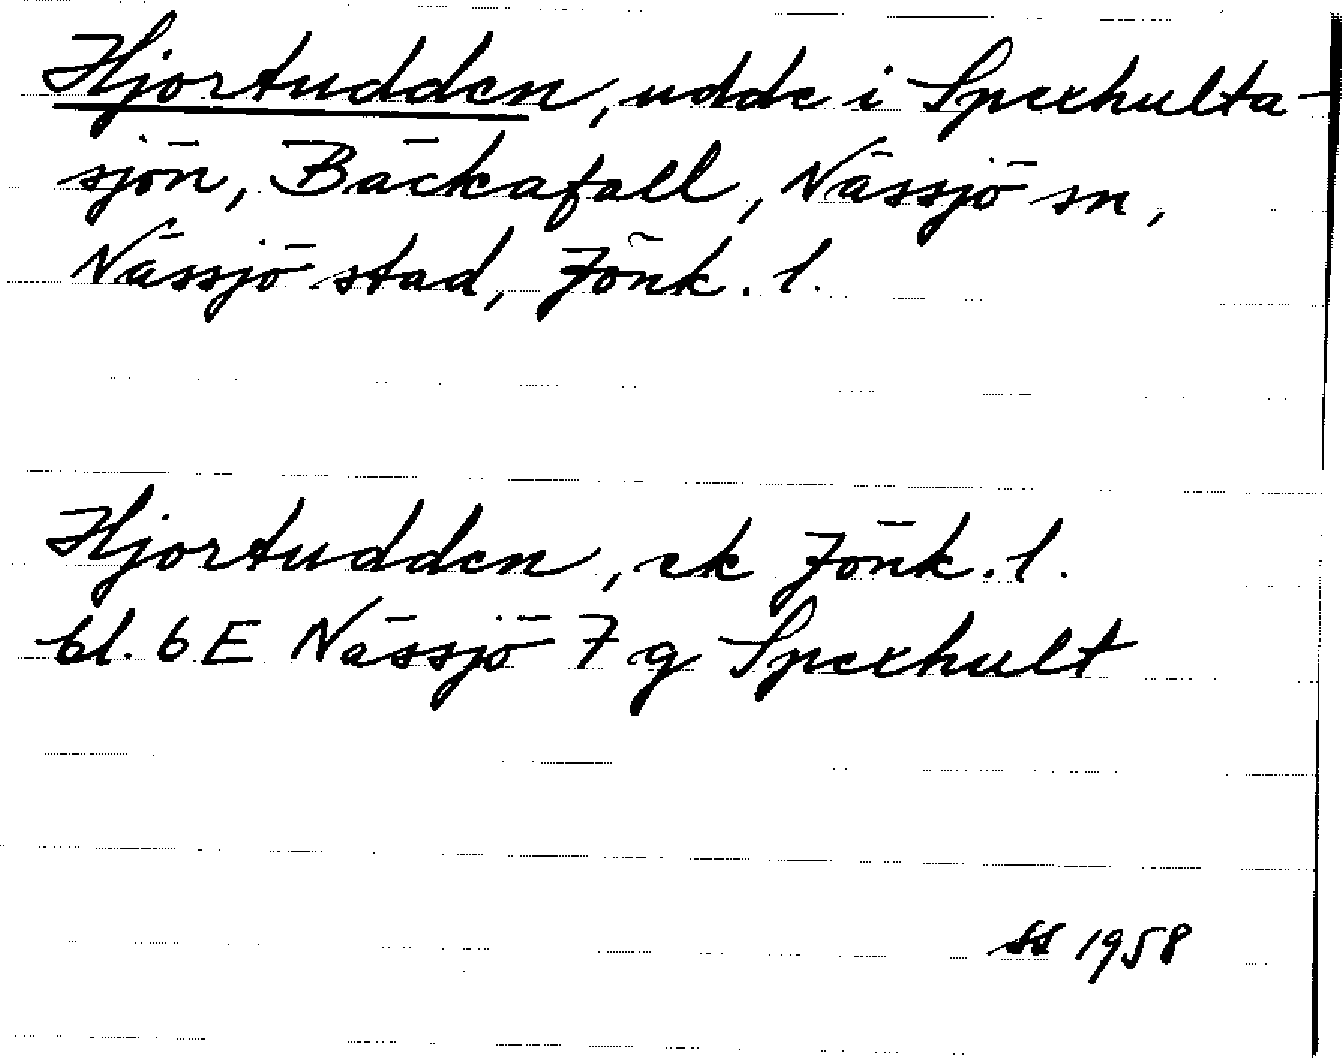 Hjortudden, udde i Spexhulta-
sjön, Bäckafall, Nässjö sn,
Nässjö stad, Jönk. l.
Hjortudden, ek Jönk. l.
bl. 6 E Nässjö 7 g Spexhult
SS 1958